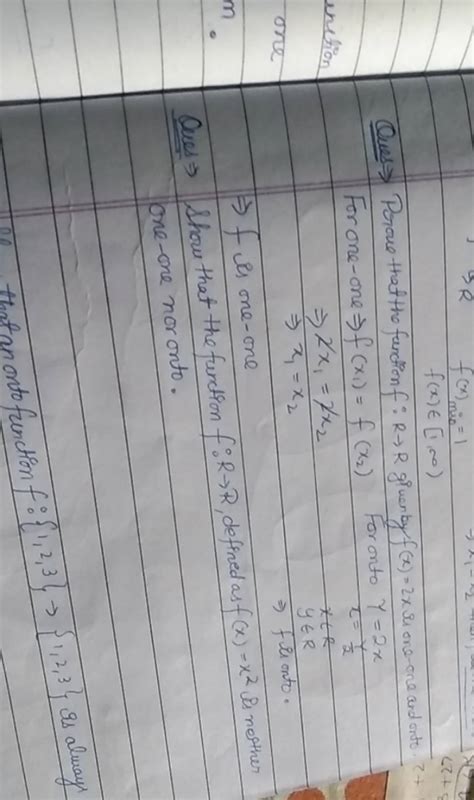 f(x) min = 1
f(x) ∈ [1, ∞)
Ques ⇒ Prove that the function f : R→R given by f(x) = 2x is one-one and onto.
For one-one ⇒ f(x₁) = f(x₂)
⇒ 2x₁ = 2x₂
⇒ x₁ = x₂
⇒ f is one-one
For onto y = 2x
x = y/2
x ∈ R
y ∈ R
⇒ f is onto.
Ques ⇒ Show that the function f : R→R, defined as f(x) = x² is neither
one-one nor onto.
that an onto function f : {1, 2, 3} → {1, 2, 3} is always
one
m.